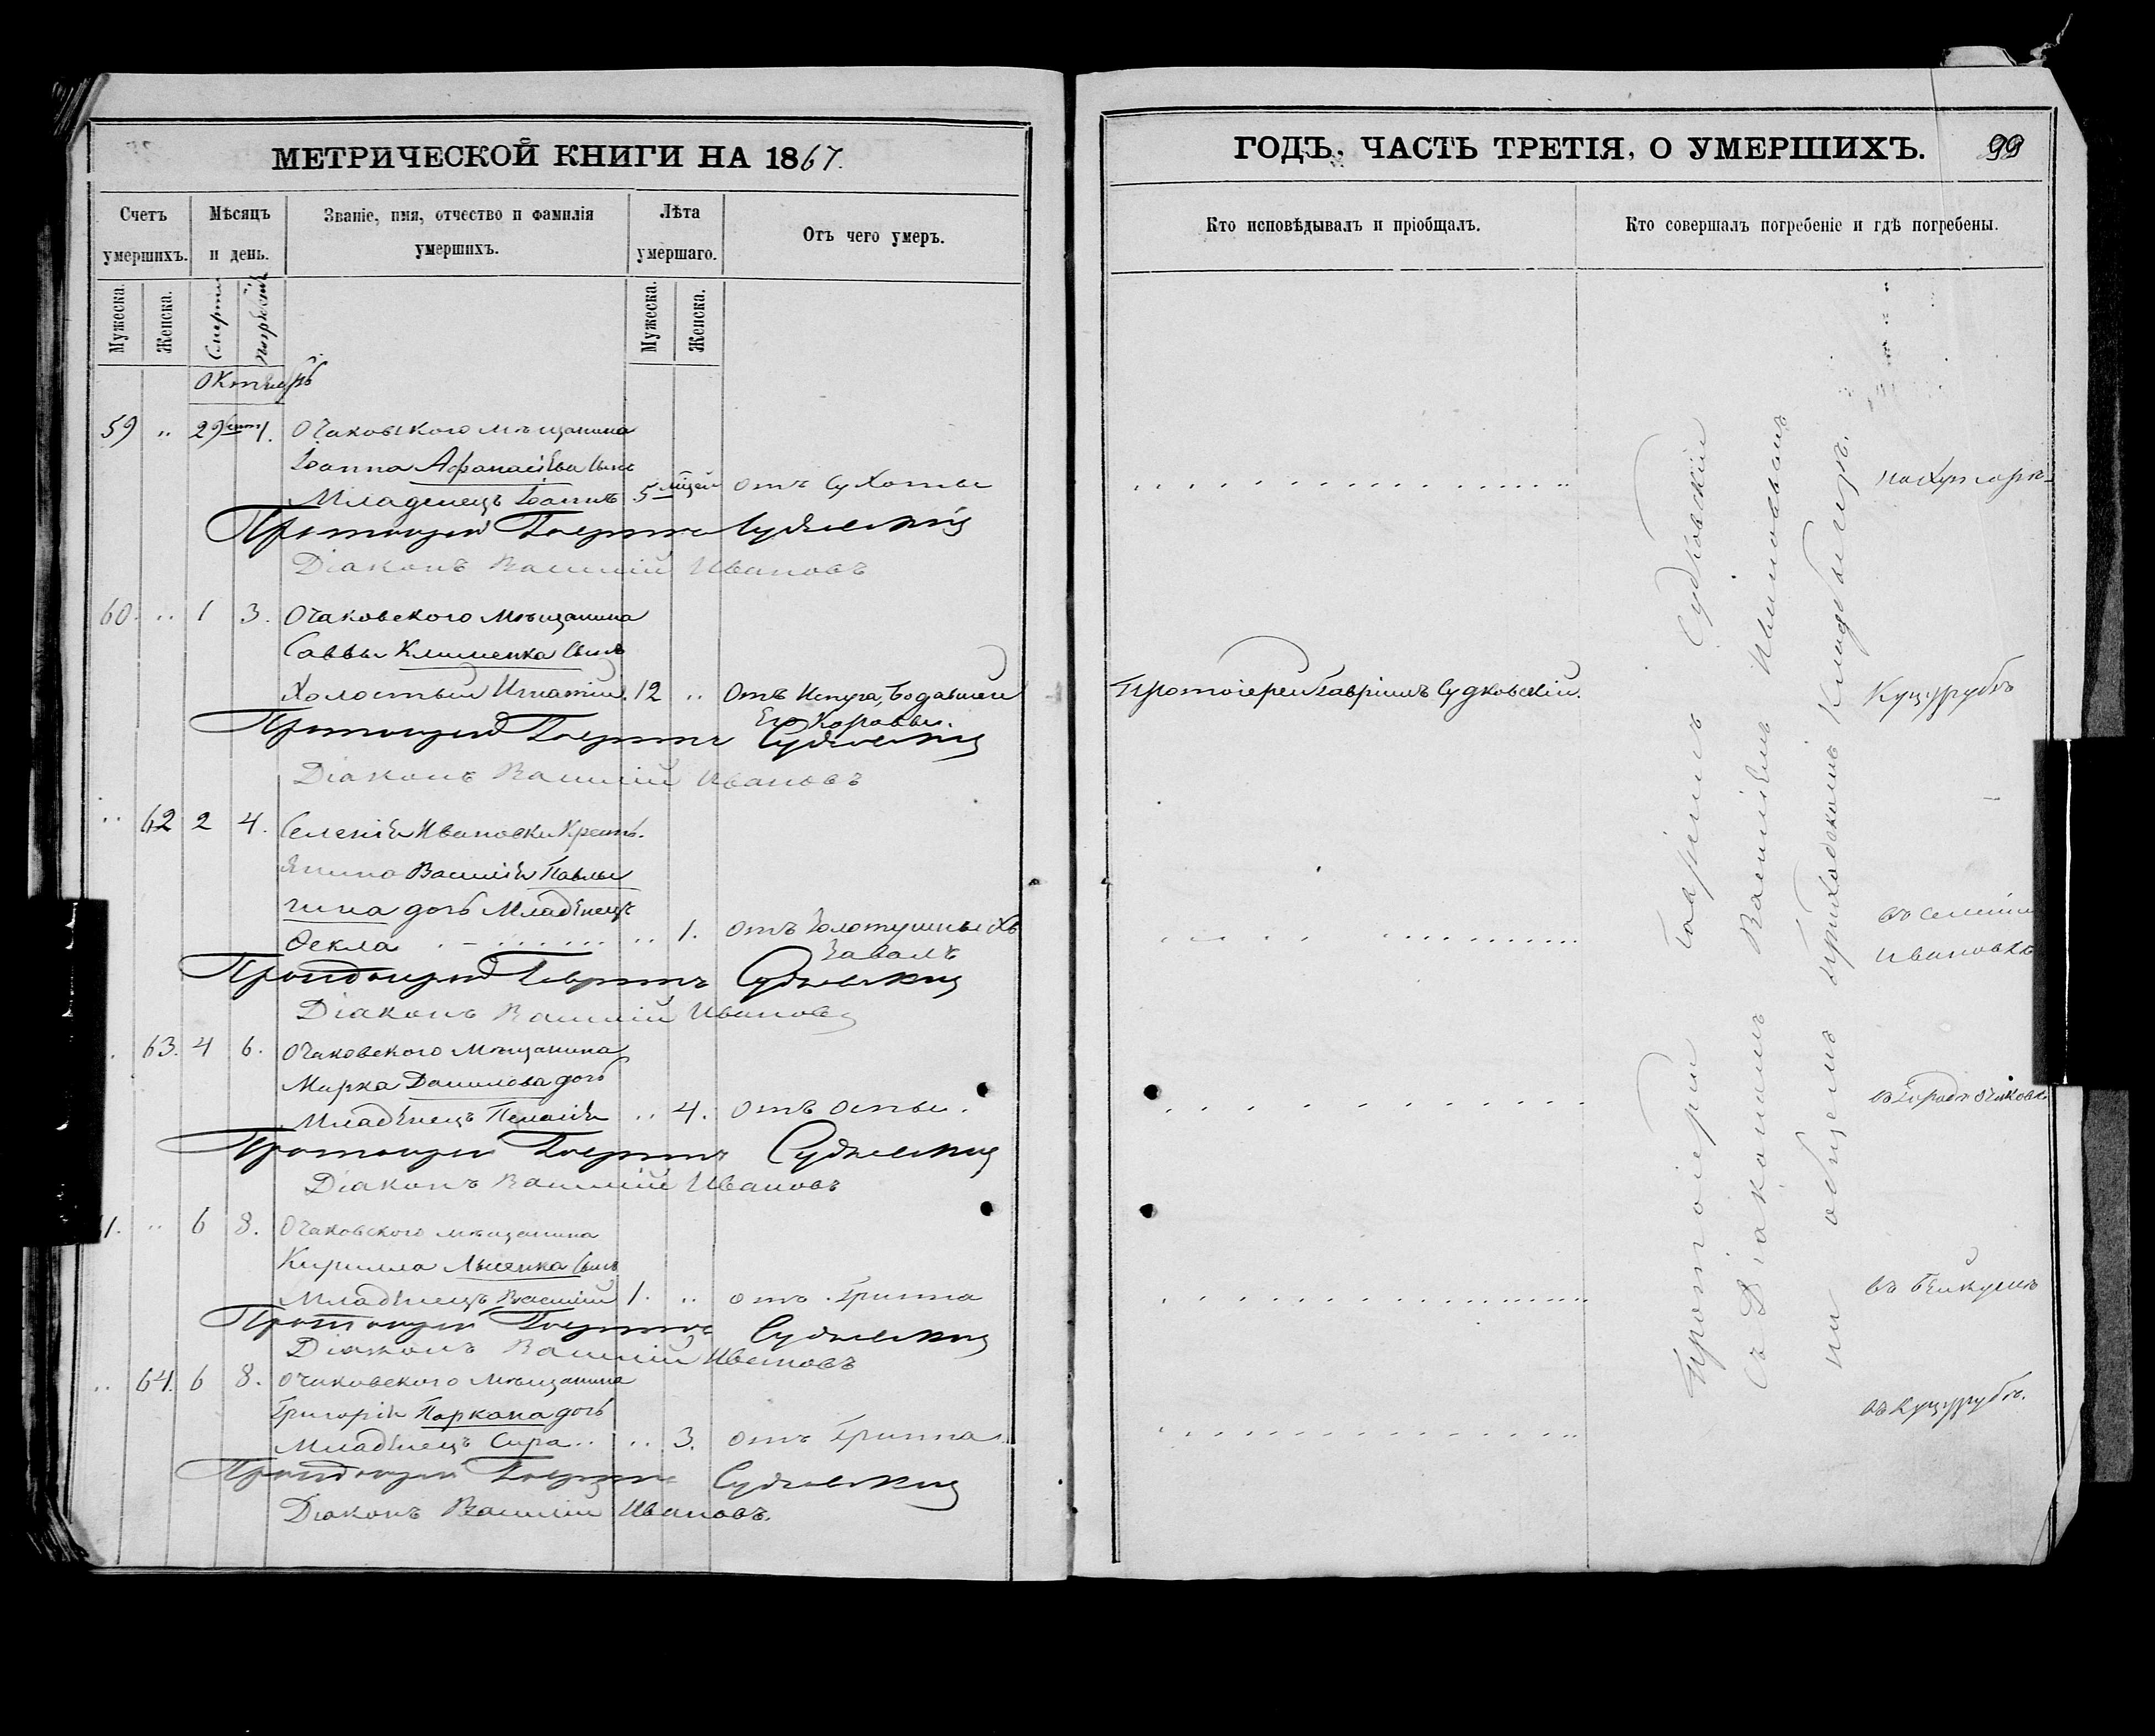 МЕТРИЧЕСКОЙ КНИГИ НА 1867.
Счетъ умершихъ.
Мѣсяцъ и день.
Званіе, имя, отчество и фамилія умершихъ.
Лѣта умершаго.
Отъ чего умеръ.
Мужеска.
Женска.
Смерти
Погребенія
Мужеска.
Женска.
Октябрь
59 " 29 сент 1. Очаковского мѣщанина
Іоанна Афанасіева сынъ
Младенецъ Іоаннъ 5 мцей отъ Сухоты
Протоіерей Гавріилъ Судковскій
Діаконъ Василій Ивановъ
60. " 1 3. Очаковского Мѣщанина
Саввы Клименка сынъ
Холостый Игнатій. 12 " Отъ Испуга, бодавшей
Его Коровы.
Протоіерей Гавріилъ Судковскій
Діаконъ Василій Ивановъ
" 62 2 4. Селенія Ивановки Крестъ-
янина Василія Павлы-
чина дочь Младенецъ
Ѳекла " 1. отъ Золотушныхъ
Завалъ
Протоіерей Гавріилъ Судковскій
Діаконъ Василій Ивановъ
63. 4 6. Очаковского Мѣщанина
Марка Данилова дочь
Младенецъ Пелагія " 4. отъ оспы.
Протоіерей Гавріилъ Судковскій
Діаконъ Василій Ивановъ
1. " 6 8. Очаковского мѣщанина
Кирилла Лысенка сынъ
Младенецъ Василій 1. " отъ Гриппа
Протоіерей Гавріилъ Судковскій
Діаконъ Василій Ивановъ
" 64. 6 8. Очаковского Мѣщанина
Григорія Паркана дочь
Младенецъ Сира " 3. отъ Гриппа
Протоіерей Гавріилъ Судковскій
Діаконъ Василій Ивановъ.
ГОДЪ, ЧАСТЬ ТРЕТІЯ, О УМЕРШИХЪ. 99
Кто исповѣдывалъ и пріобщалъ.
Кто совершалъ погребеніе и гдѣ погребены.
Протоіерей Гавріилъ Судковскій.
Протоіерей Гавріилъ Судковскій
съ Діакономъ Василіемъ Ивановымъ
на общемъ приходскомъ Кладбищѣ.
на Хуторѣ
Куцурубѣ
въ Селеніи
Ивановкѣ
въ Городѣ Очаковѣ
въ Бейкушѣ
въ Куцурубѣ.